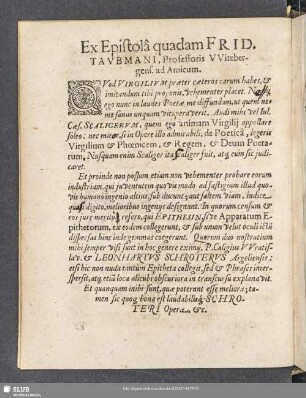 Ex Epistolâ quadam FRID.
TAVBMANI, Professoris VVitebergens.
ad Amicum.
QVod VIRGILIVM præter cæteros carum habes, &
imitandum tibi proponis, vehementer placet.
ego nunc in laudes Poetæ me diffundam, ut quem nemo
sanus unquam vituperaverit. Audi mihi vel Iul.
Cæs. SCALIGERVM, quem ego animam Virgilij appellare
soleo: nec miror, si in Opere illo admirabili, de Poeticâ, legeris
Virgilium & Phœnicem, & Regem, & Deum Poetarum.
Nusquam enim Scaliger ita Scaliger fuit, atq; cum sic judicaret.
Et proinde non possum etiam non vehementer probare eorum
industriam, qui juventutem quovis modo ad fastigium illud quovis
humano ingenio altius, sub ducunt: aut saltem viam, indice
quasi digito, melioribus ingenijs designant. In quorum censum &
eos jure meritò refero, qui EPITHESIN, sive Apparatum Epithetorum,
ex eodem collegerunt, & sub unum velut oculi ictū
dispersas hinc inde gemmas coegerunt. Quorum duo nostratium
mihi semper visi sunt in hoc genere eximij, P. Calagius VVratislav.
& LEONHARTVS SCHROTERVS Argeliensis:
etsi hic non nuda tantùm Epitheta collegit, sed & Phrases interspersit,
atq; etiā loca alicubi obscuriora in transitu explanavit.
Et quanquam inibi sunt, quæ poterant esse meliora; tamen
sic quoq; bona est laudabilisq; SCHROTERI
Opera, &c.
SLUB